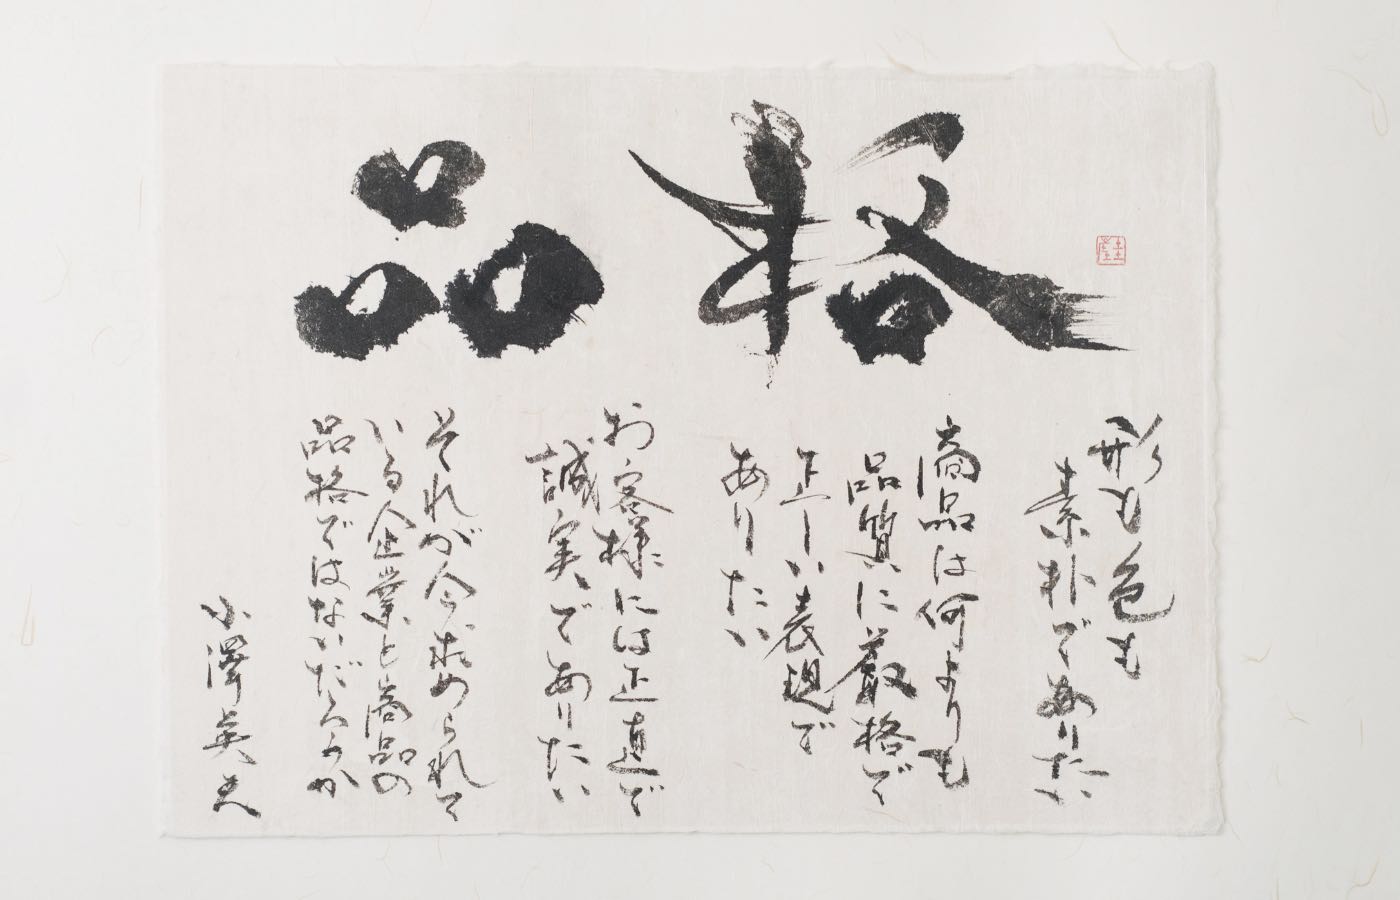 品格
形も色も
素朴でありたい
商品は何よりも
品質に厳格で
正しい表現で
ありたい
お客様には正直で
誠実でありたい
それが今、求められて
いる企業と商品の
品格ではないだろうか
小澤英夫